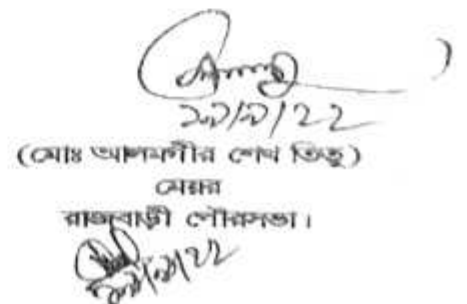 ২৯/৯/২২
(মোঃ আলমগীর শেখ তিতু)
মেয়র
রাজবাড়ী পৌরসভা।